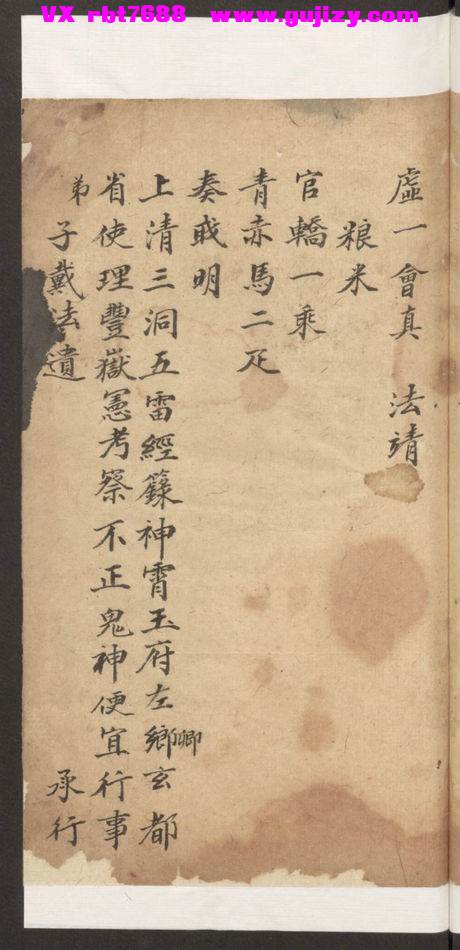 VX rbt7688 www.gujizy.com
虛一會真 法靖
粮米
官轎一乘
青赤馬二疋
奏戝明
上清三洞五雷經籙神霄玉府左鄉卿玄都
省使理豐嶽憲考察不正鬼神便宜行事
弟子戴法遺 承行